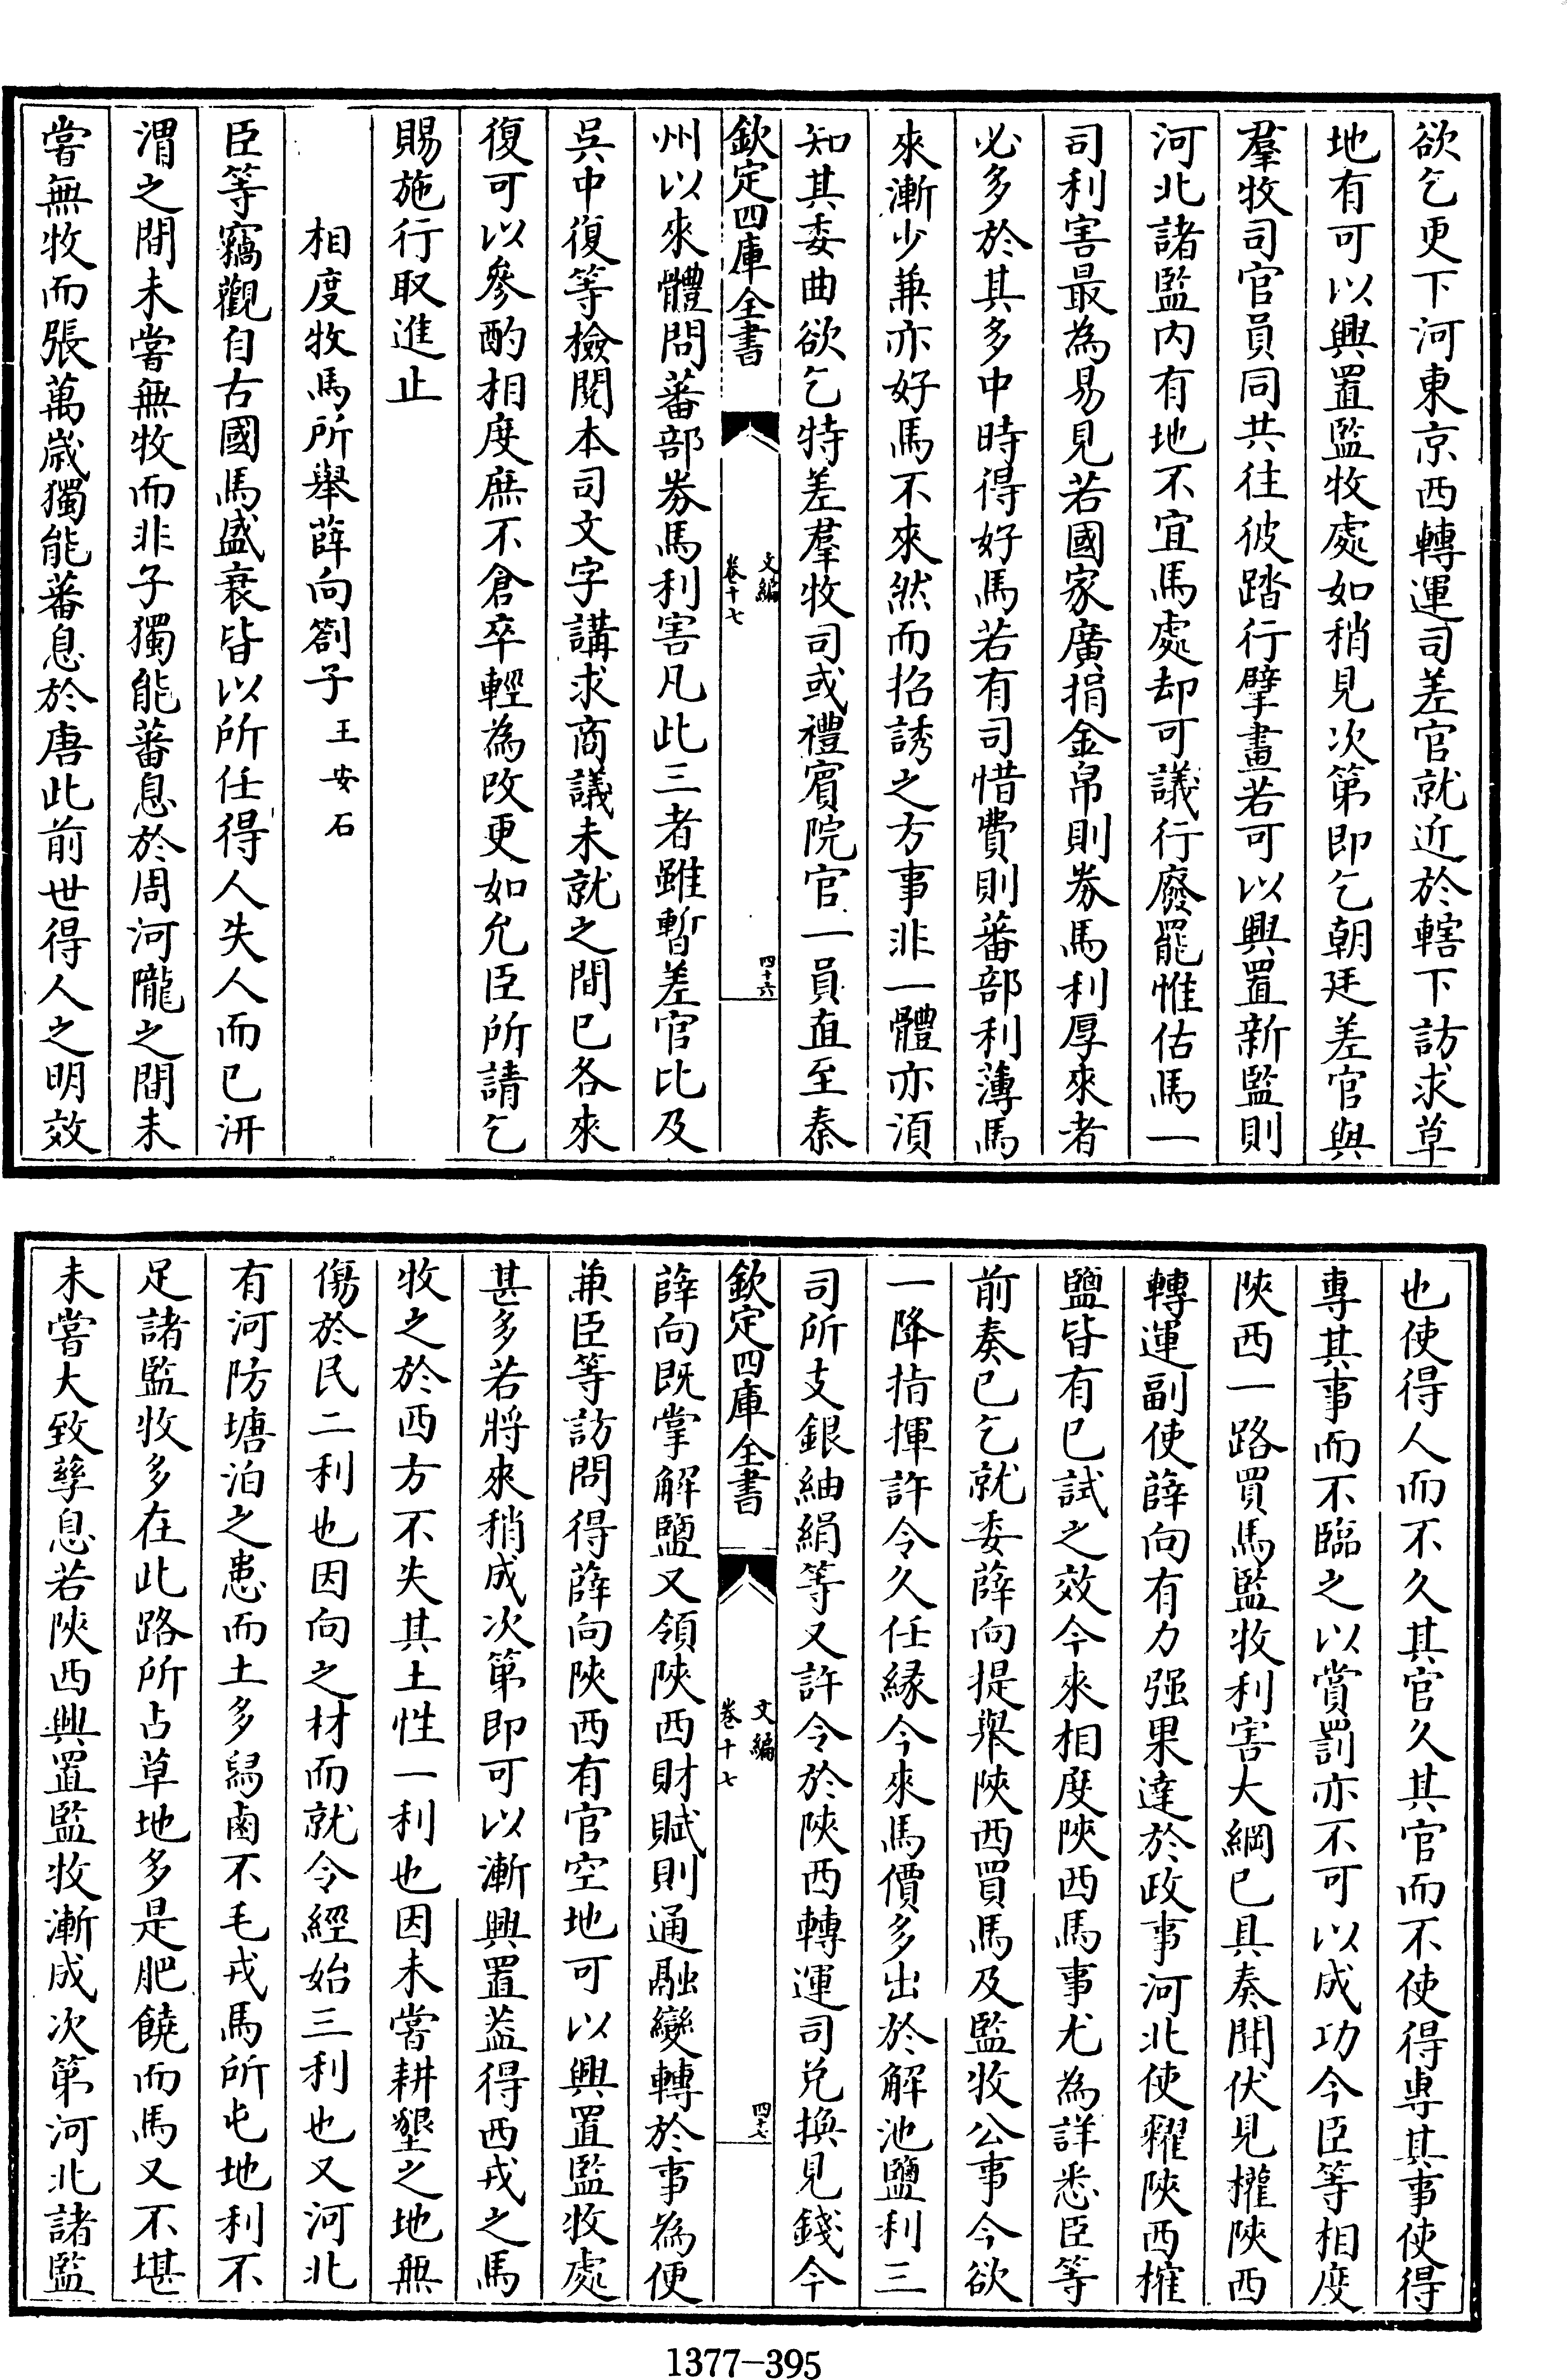 欲乞更下河東京西轉運司差官就近於轄下訪求草
地有可以興置監牧處如稍見次第即乞朝廷差官與
羣牧司官員同共往彼踏行擘畫若可以興置新監則
河北諸監内有地不宜馬處却可議行廢罷惟估馬一
司利害最為易見若國家廣捐金帛則券馬利厚來者
必多於其多中時得好馬若有司惜費則蕃部利薄馬
來漸少兼亦好馬不來然而招誘之方事非一體亦湏
知其委曲欲乞特差羣牧司或禮賓院官一員直至秦
欽定四庫全書
文編
卷十七
四十六
州以來體問蕃部券馬利害凡此三者雖暫差官比及
吳中復等檢閱本司文字講求商議未就之間已各來
復可以參酌相度庶不倉卒輕為改更如允臣所請乞
賜施行取進止
相度牧馬所舉薛向劄子王安石
臣等竊觀自古國馬盛衰皆以所任得人失人而已汧
渭之間未嘗無牧而非子獨能蕃息於周河隴之間未
嘗無牧而張萬歲獨能蕃息於唐此前世得人之明效
也使得人而不久其官久其官而不使得専其事使得
專其事而不臨之以賞罰亦不可以成功今臣等相度
陜西一路買馬監牧利害大綱已具奏聞伏見權陜西
轉運副使薛向有力强果達於政事河北使糴陜西榷
鹽皆有已試之效今來相度陜西馬事尤為詳悉臣等
前奏已乞就委薛向提舉陜西買馬及監牧公事今欲
一降指揮許令久任縁今來馬價多出於解池鹽利三
司所支銀紬絹等又許令於陜西轉運司兑換見錢今
欽定四庫全書
文編
卷十七
四十七
薛向既掌解鹽又領陜西財賦則通融變轉於事為便
兼臣等訪問得薛向陜西有官空地可以興置監牧處
甚多若將來稍成次第即可以漸興置葢得西戎之馬
牧之於西方不失其土性一利也因未嘗耕墾之地無
傷於民二利也因向之材而就令經始三利也又河北
有河防塘泊之患而土多舄鹵不毛戎馬所屯地利不
足諸監牧多在此路所占草地多是肥饒而馬又不堪
未嘗大致孳息若陜西興置監牧漸成次第河北諸監
1377—395